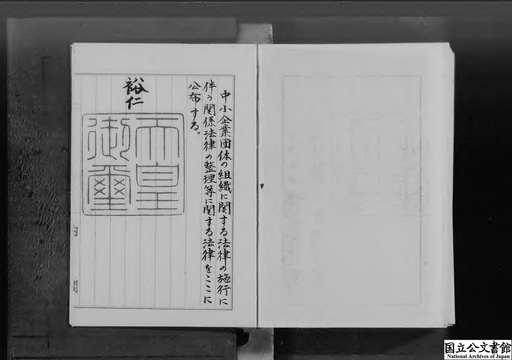 中小企業団体の組織に関する法律の施行に
伴う関係法律の整理等に関する法律をここに
公布する。
裕仁
天皇
御璽
国立公文書館
National Archives of Japan